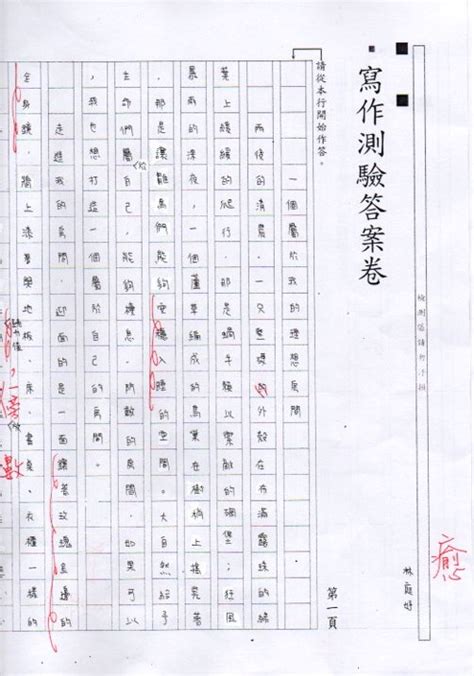 寫作測驗答案卷
請從本行開始作答。
一個屬於我的理想房間
雨後的清晨,一只堅硬的外殼在布滿露珠的綠
葉上緩緩的爬行,那是蝸牛賴以禦敵的碉堡;狂風
暴雨的夜,蘆葦草編成的鳥巢在樹梢上搖晃著
那是讓雛鳥們能夠安穩入睡的空間。大自然給予
生命們屬於自己能夠棲息的房間。如果可以
,我也想打造一個屬於自己的房間。
走進我的房間,迎面的是一面鑲著玫瑰金邊的
全身鏡,牆上漆著與地板、床、書桌、衣櫃一樣的
第一頁
癒
數